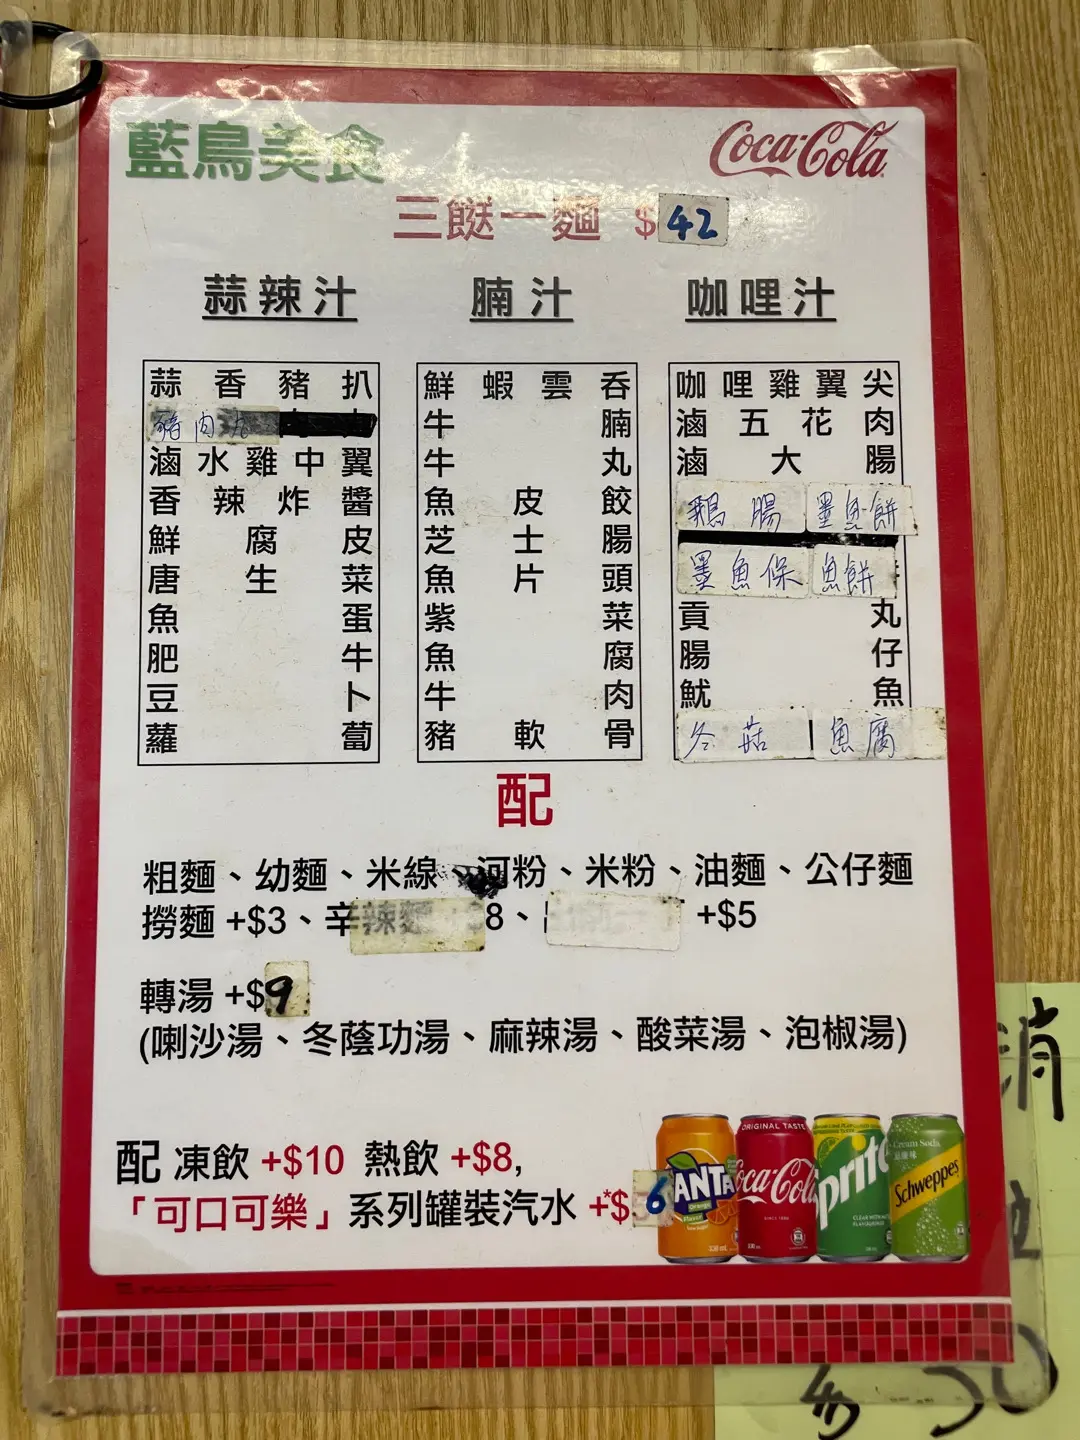 藍鳥美食
Coca-Cola
三餸一麵 $42
蒜辣汁
蒜香豬扒
豬肉丸
滷水雞中翼
香辣炸醬
鮮腐皮
唐生菜
魚蛋
肥牛
豆卜
蘿蔔
腩汁
鮮蝦雲吞
牛腩
牛丸
魚皮餃
芝士腸
魚片頭
紫菜
魚腐
牛肉
豬軟骨
咖哩汁
咖哩雞翼尖
滷五花肉
滷大腸
鵝腸 墨魚餅
墨魚條 魚餅
貢丸
腸仔
魷魚
冬菇 魚腐
配
粗麵、幼麵、米線、河粉、米粉、油麵、公仔麵
撈麵 +$3、辛辣麵 8、 +$5
轉湯 +$9
(喇沙湯、冬蔭功湯、麻辣湯、酸菜湯、泡椒湯)
配 凍飲 +$10 熱飲 +$8,
「可口可樂」系列罐裝汽水 +$6
FANTA
Orange
ORIGINAL TASTE
Coca-Cola
Sprite
Cream Soda
Schweppes
消
50